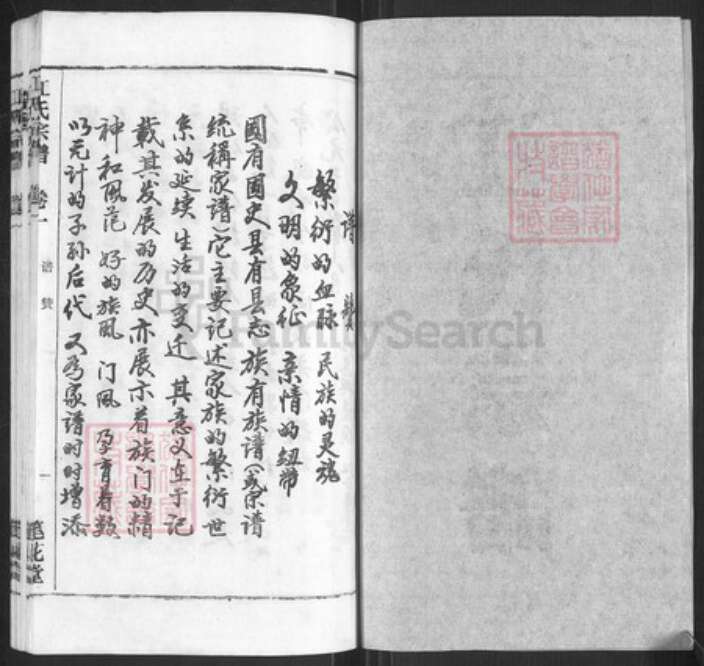 譜 贊
繁衍的血脉 民族的灵魂
文明的象征 亲情的纽带
國有國史县有县志族有族谱(或宗谱
统稱家谱)它主要记述家族的繁衍世
系的延续 生活的变迁 其意义在于记
载其发展的历史亦展示着族门的精
神和風范 好的族風 门風 孕育着数
以无计的子孙后代 又为家谱时时增添
江氏宗谱 卷一 谱赞 一 笔花堂
FamilySearch